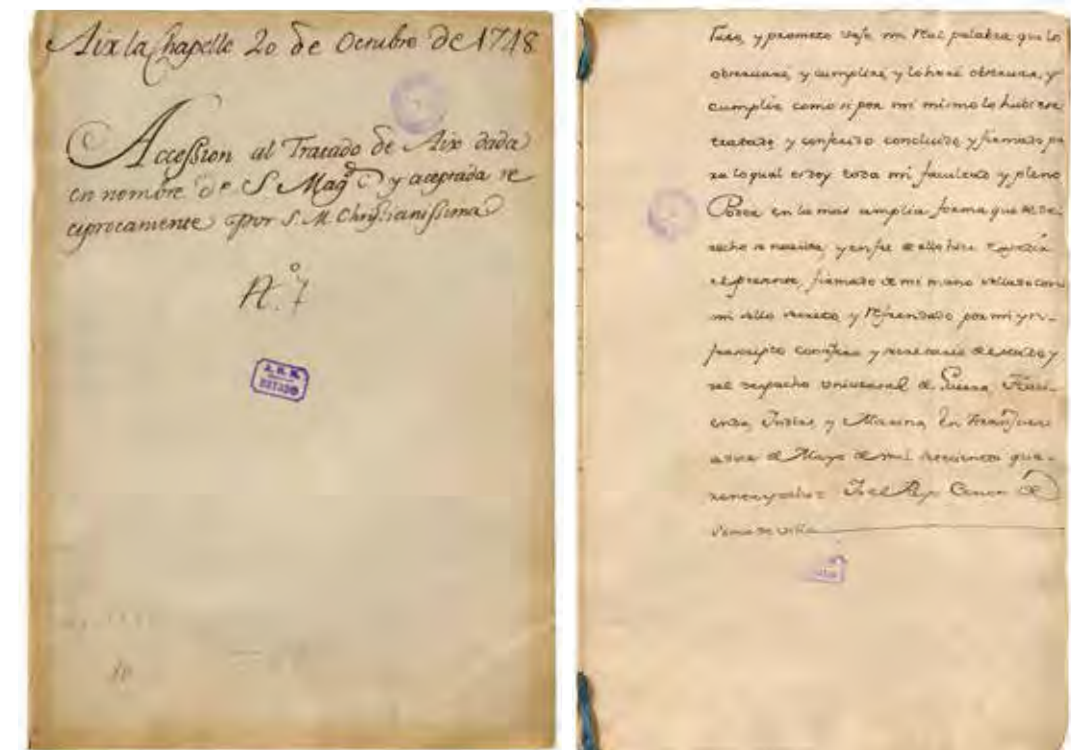 Aix la Chapelle 20 de Octubre de 1748
Accession al Tratado de Aix dada
en nombre de S. Mag.d y aceptada re
ciprocamente por S. M. Christianissima
N.º 7
A. H. N.
ESTADO
y prometo vajo mi Real palabra que lo
observaré, y cumpliré y lo haré observar, y
cumplir como si por mi mismo lo hubiera
tratado y conferido concluido y firmado pa
ra lo qual os doy toda mi facultad y pleno
Poder en la mas amplia forma que de de
recho se necesita, y en fee de ello hice expedir
el presente, firmado de mi mano sellado con
mi sello secreto y refrendado por mi yn-
frascripto consejero y secretario de estado y
del despacho Universal de Guerra, Haci-
enda, Indias, y Marina, En Aranjuez
a de Mayo de mil setecientos qua-
renta y ocho = Yo el Rey = Cenon de
Somodevilla